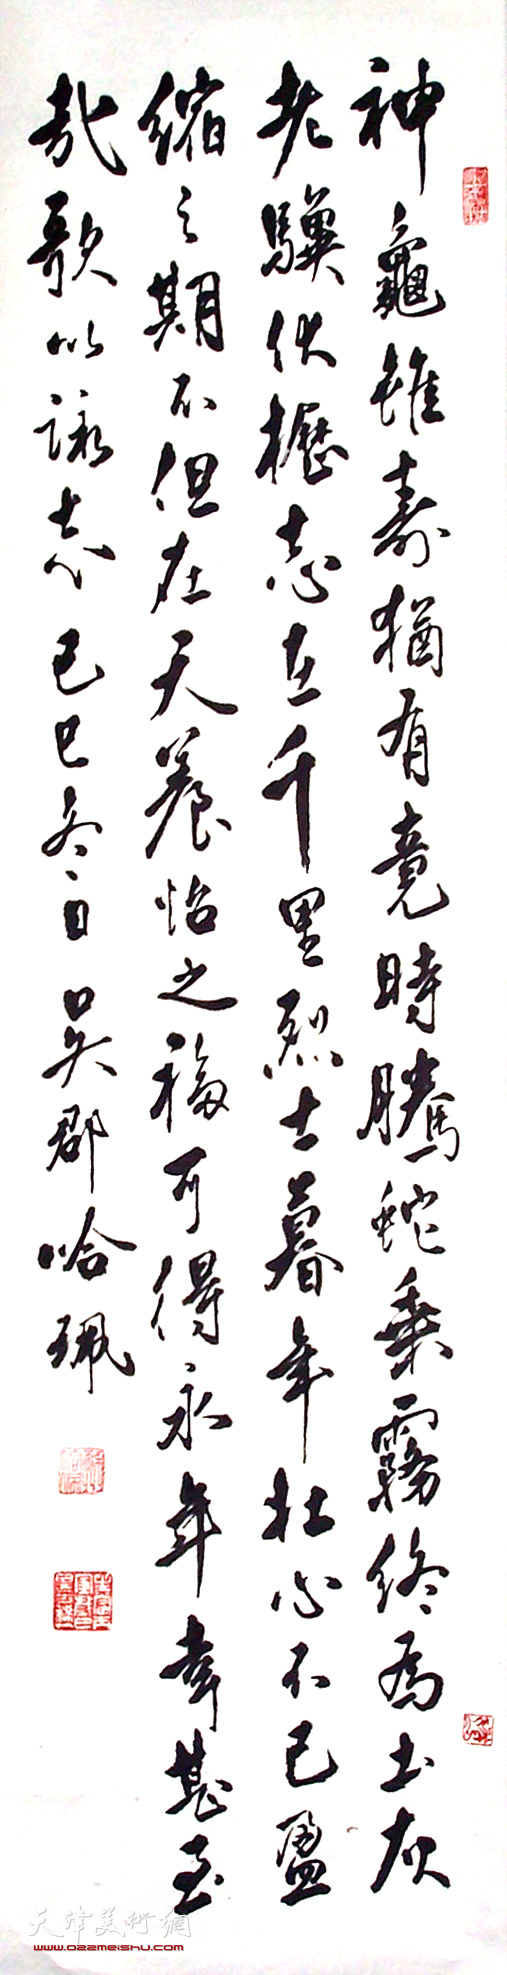 神龜雖壽猶有竟時騰蛇乘霧終為土灰
老驥伏櫪志在千里烈士暮年壯心不已盈
縮之期不但在天養怡之福可得永年幸甚至
哉歌以詠志己巳冬日吳郡哈珮
天津美術網
www.022meishu.com